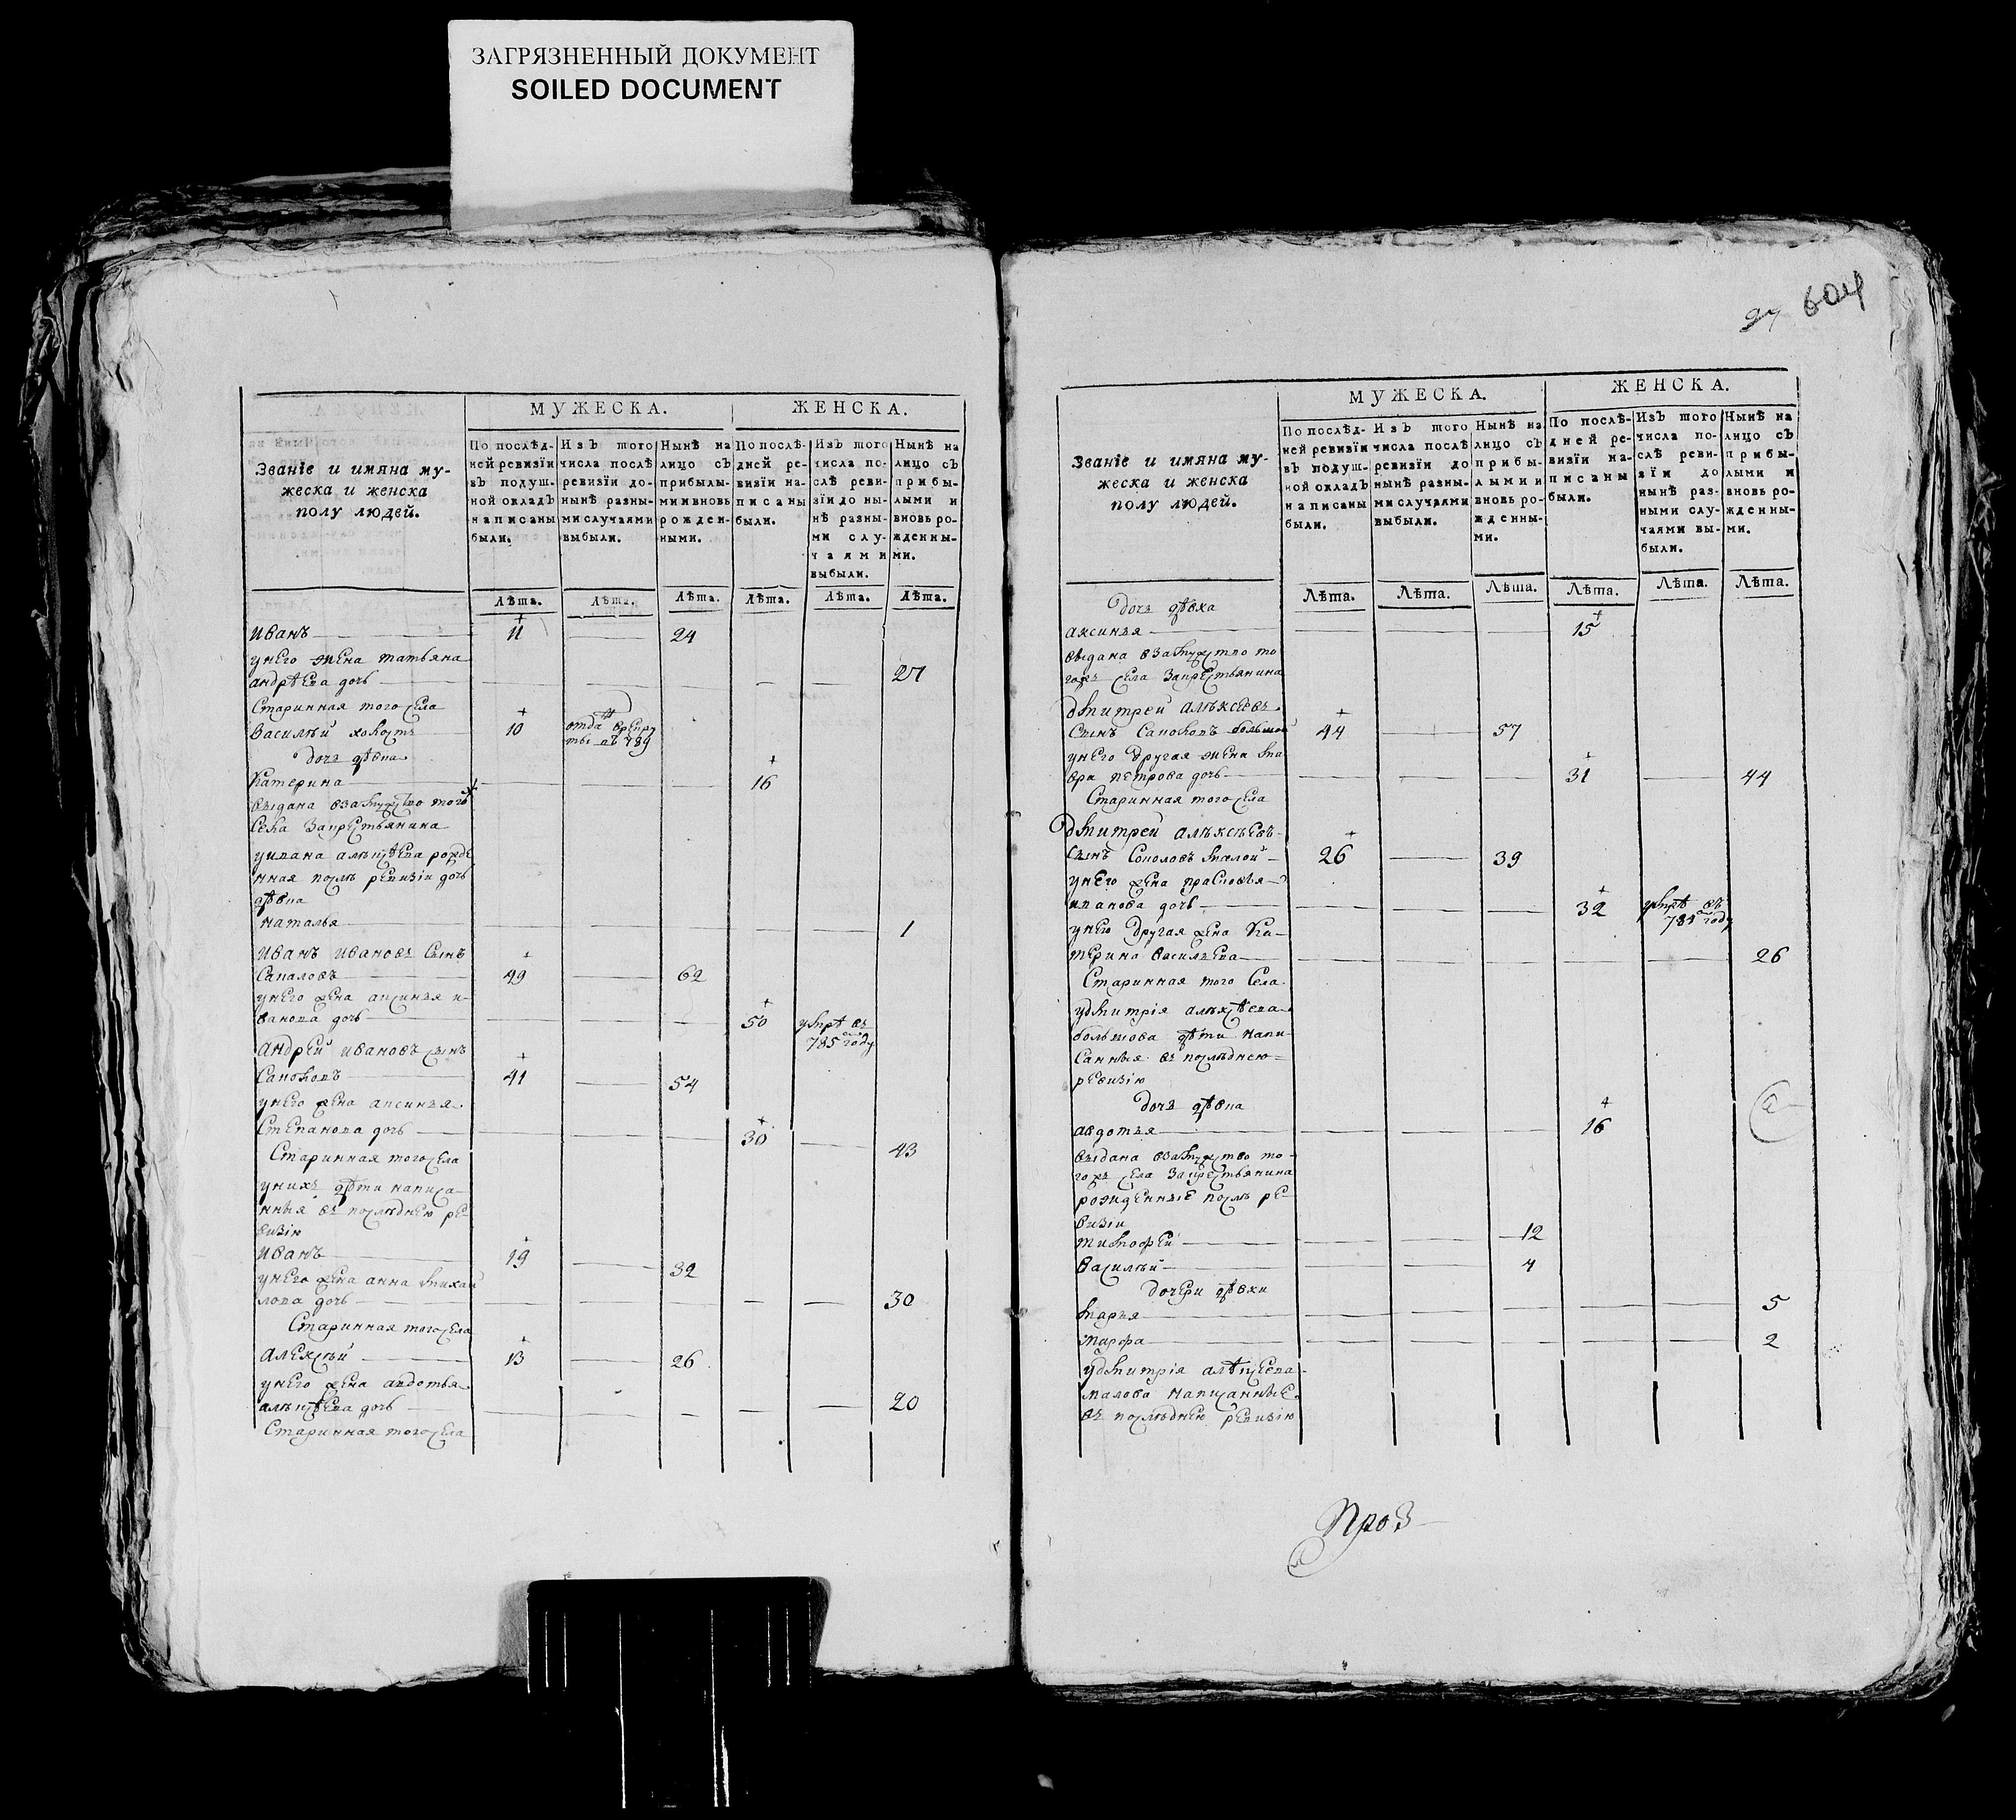 ЗАГРЯЗНЕННЫЙ ДОКУМЕНТ
SOILED DOCUMENT
604
Званіе и имяна му-
жеска и женска
полу людей.
МУЖЕСКА.
ЖЕНСКА.
По послѣд-
ней ревизіи
въ подуш-
ной окладъ
написаны
были.
Изъ того
числа послѣ
ревизіи до-
нынѣ разны-
ми случаями
выбыли.
Нынѣ на
лицо съ
прибылы-
ми и вновь
рожден-
ными.
По послѣ-
дней ре-
визіи на-
писаны
были.
Изъ того
числа по-
слѣ реви-
зіи до ны-
нѣ разны-
ми слу-
чаями
выбыли.
Нынѣ на
лицо съ
прибы-
лыми и
вновь ро-
жденны-
ми.
Лѣта. Лѣта. Лѣта. Лѣта. Лѣта. Лѣта.
Иванъ 11 24
у него жена татьяна
андрѣева дочь 27
Старинная того села
Василѣй холостъ 10 отда врекру
ты въ 789
дочь дѣвка
Катерина 16
выдана взамужство тогожъ
села закрестьянина
уивана алѣксѣева рожде
нная послѣ ревизіи дочь
дѣвка
наталья 1
Иванъ Ивановъ сынъ
Сапаловъ 49 62
у него жена аксинья и-
ванова дочь 50 умрѣ въ
785 году
Андрей Ивановъ сынъ
Саполовъ 41 54
у него жена аксинья
Степанова дочь 30 43
Старинная того села
у нихъ дѣти написа-
нныя въ послѣднею ре-
визію
Иванъ 19 32
у него жена анна михай
лова дочь 30
Старинная того села
Алексѣй 13 26
у него жена авдотья
алѣксѣева дочь 20
Старинная того села
Званіе и имяна му-
жеска и женска
полу людей.
МУЖЕСКА.
ЖЕНСКА.
По послѣд-
ней ревизіи
въ подуш-
ной окладъ
написаны
были.
Изъ того
числа послѣ
ревизіи до
нынѣ разны-
ми случаями
выбыли.
Нынѣ на
лицо съ
прибы-
лыми и
вновь ро-
жденны-
ми.
По послѣ-
дней ре-
визіи на-
писаны
были.
Изъ того
числа по-
слѣ реви-
зіи до
нынѣ раз-
ными слу-
чаями вы-
были.
Нынѣ на
лицо съ
прибы-
лыми и
вновь ро-
жденны-
ми.
Лѣта. Лѣта. Лѣта. Лѣта. Лѣта. Лѣта.
дочь дѣвка
аксинья 15
выдана взамужство то
гожъ села закрестьянина
Дмитрей Алѣксѣевъ
сынъ Саполовъ большой 44 57
у него другая жена ма
вра петрова дочь 31 44
Старинная того села
Дмитрей Алѣксѣевъ
сынъ Сополовъ малой 26 39
у него жена прасковья
иванова дочь 32 умрѣ въ
785 году
у него другая жена ка-
терина василѣева 26
Старинная того села
удмитрія алѣксѣева
большова дѣти напи-
санныя въ послѣднею
ревизію
дочь дѣвка
авдотья 16
выдана взамужство то-
гожъ села закрестьянина
рожденныѣ послѣ ре-
визіи
тимофей 12
Василѣй 4
дочери дѣвки
марья 5
марфа 2
удмитрія алѣксѣева
малова написанныѣ
въ послѣднею ревизію